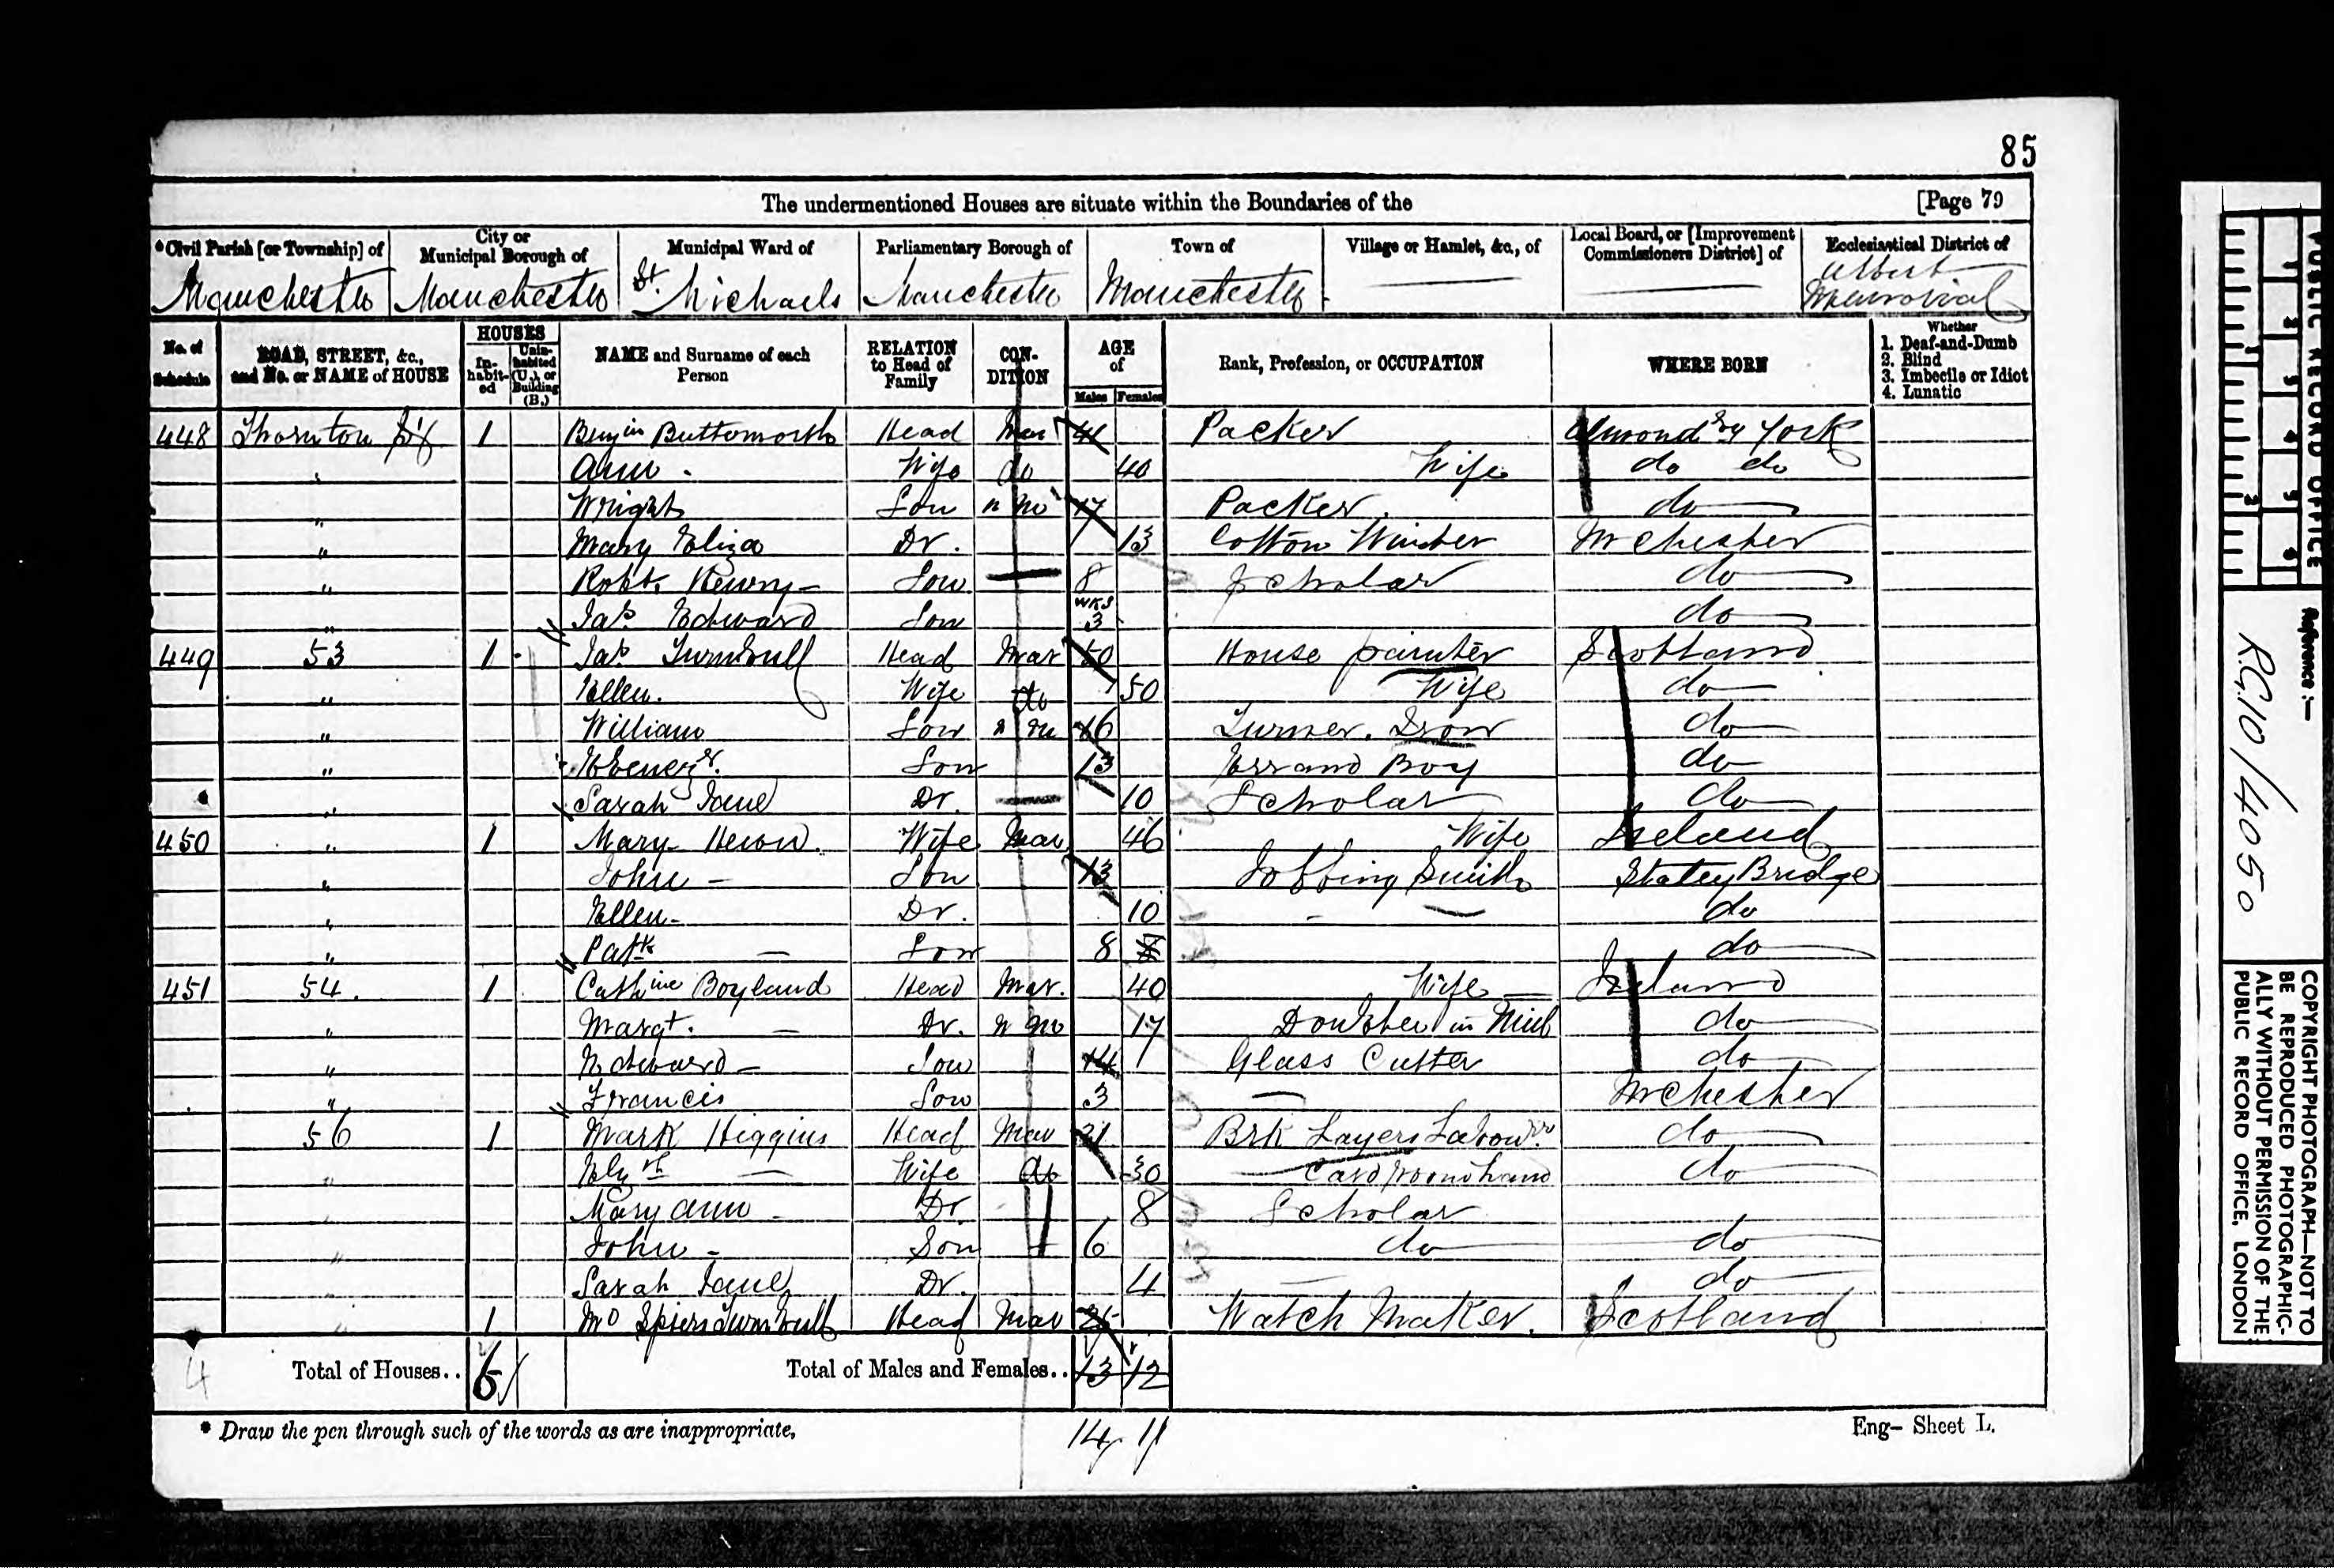 85
The undermentioned Houses are situate within the Boundaries of the [Page 79
*Civil Parish [or Township] of City or Municipal Borough of Municipal Ward of Parliamentary Borough of Town of Village or Hamlet, &c., of Local Board, or [Improvement Commissioners District] of Ecclesiastical District of
Manchester Manchester St. Michaels Manchester Manchester Albert Memorial
No. of Schedule ROAD, STREET, &c., and No. or NAME of HOUSE HOUSES Inhabited Uninhabited (U.), or Building (B.) NAME and Surname of each Person RELATION to Head of Family CONDITION AGE of Males Females Rank, Profession, or OCCUPATION WHERE BORN Whether 1. Deaf-and-Dumb 2. Blind 3. Imbecile or Idiot 4. Lunatic
448 Thornton St 1 Benjin Butterworth Head Mar 41 Packer Almondby York
" Ann - Wife do 40 Wife do do
" Wright Son n m 17 Packer do
" Mary Eliza Dr. 13 Cotton Winder Mchester
" Robt. Henry - Son 8 Scholar do
" Jas Edward Son wks 3 do
449 53 1 Jas Turnbull Head Mar 50 House painter Scotland
" Ellen. Wife do 50 Wife do
" William Son n m 16 Turner. Iron do
" Ebenezr. Son 13 Errand Boy do
" Sarah Jane Dr. 10 Scholar do
450 " 1 Mary Heron. Wife Mar 46 Wife Ireland
" John - Son 13 Jobbing Smith Staley Bridge
" Ellen - Dr. 10 - do
" Patk - Son 8 8 do
451 54. 1 Cathine Boyland Head Mar. 40 Wife Ireland
" Margt. - Dr. n m 17 Doubler in Mill do
" Edward - Son 14 Glass Cutter do
" Francis Son 3 - Mchester
56 1 Mark Higgins Head Mar 31 Brk Layers Labourr do
" Elzth - Wife do 30 Card room hand do
" Mary Ann - Dr. 8 Scholar
" John - Son 6 do do
Sarah Jane Dr. 4 - do
" 1 Spiers Turnbull Head Mar Watch Maker. Scotland
4 Total of Houses.. Total of Males and Females.. 13 12
14 11
* Draw the pen through such of the words as are inappropriate, Eng- Sheet L.
PUBLIC RECORD OFFICE
Reference :-
R.G. 10/4050
COPYRIGHT PHOTOGRAPH—NOT TO
BE REPRODUCED PHOTOGRAPHIC-
ALLY WITHOUT PERMISSION OF THE
PUBLIC RECORD OFFICE, LONDON